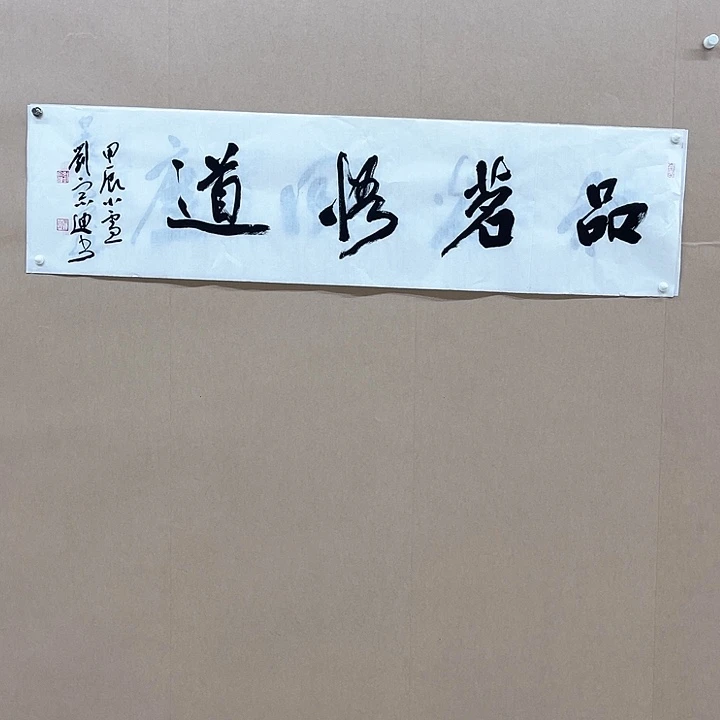 品茗悟道
甲辰小雪
劉宗迪书